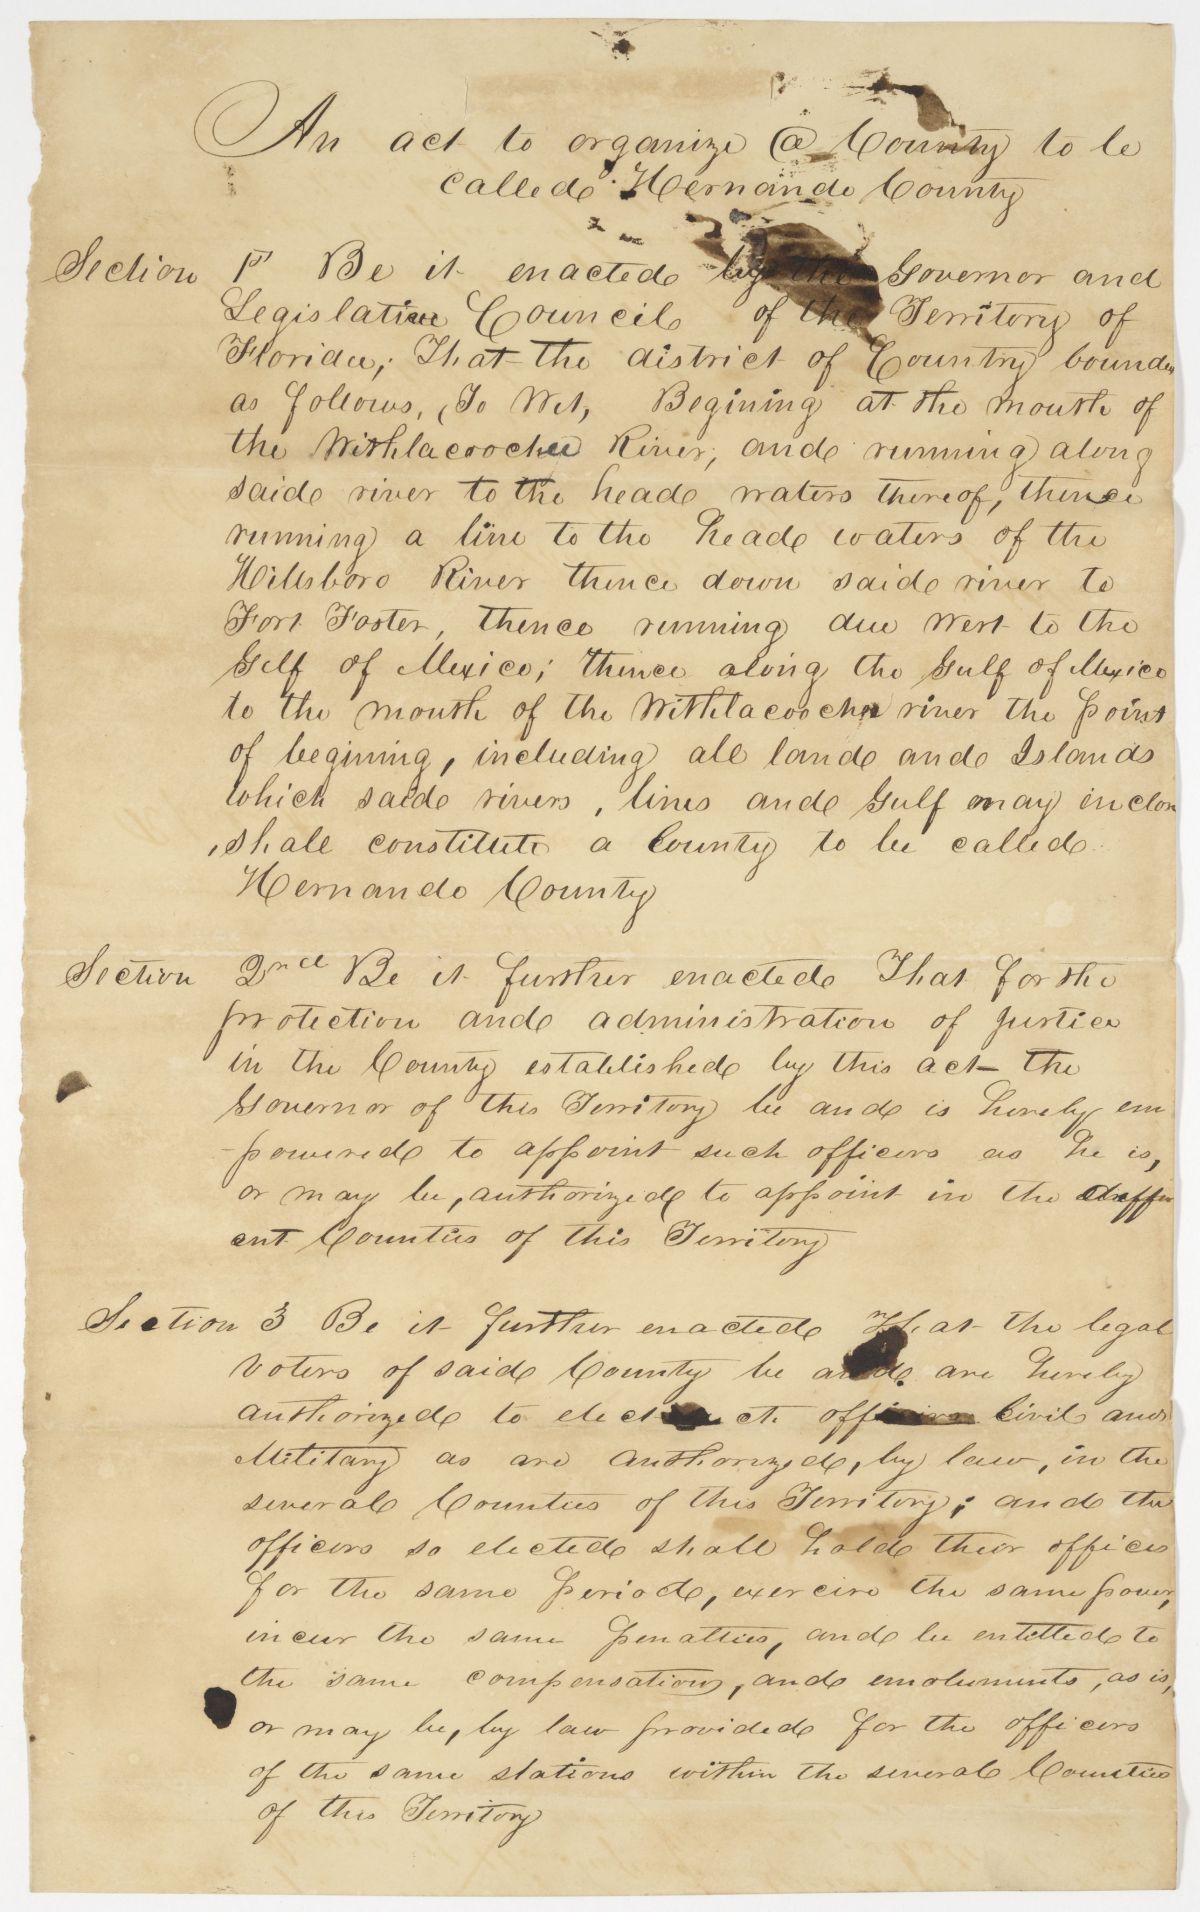 An act to organize a County to be
called Hernando County
Section 1st Be it enacted by the Governor and
Legislative Council of the Territory of
Florida; That the district of Country bounded
as follows, To Wit, Begining at the mouth of
the Withlacoochee River, and running along
said river to the head waters thereof, thence
running a line to the head waters of the
Hillsboro River thence down said river to
Fort Foster, thence running due West to the
Gulf of Mexico; thence along the Gulf of Mexico
to the mouth of the Withlacoochee river the point
of begining, including all land and Islands
which said rivers, lines and Gulf may inclose
, shall constitute a County to be called
Hernando County
Section 2nd Be it further enacted That for the
protection and administration of justice
in the County established by this act the
Governor of this Territory be and is hereby em
-powered to appoint such officers as he is,
or may be, authorized to appoint in the differ
ent Counties of this Territory
Section 3 Be it further enacted That the legal
Voters of said County be and are hereby
authorized to elect officers Civil and
Military as are authorized, by law, in the
several Counties of this Territory; and the
officers so elected shall hold their offices
for the same period, exercise the same power,
incur the same penalties, and be entitled to
the same compensation, and emoluments, as is,
or may be, by law provided for the officers
of the same stations within the several Counties
of this Territory